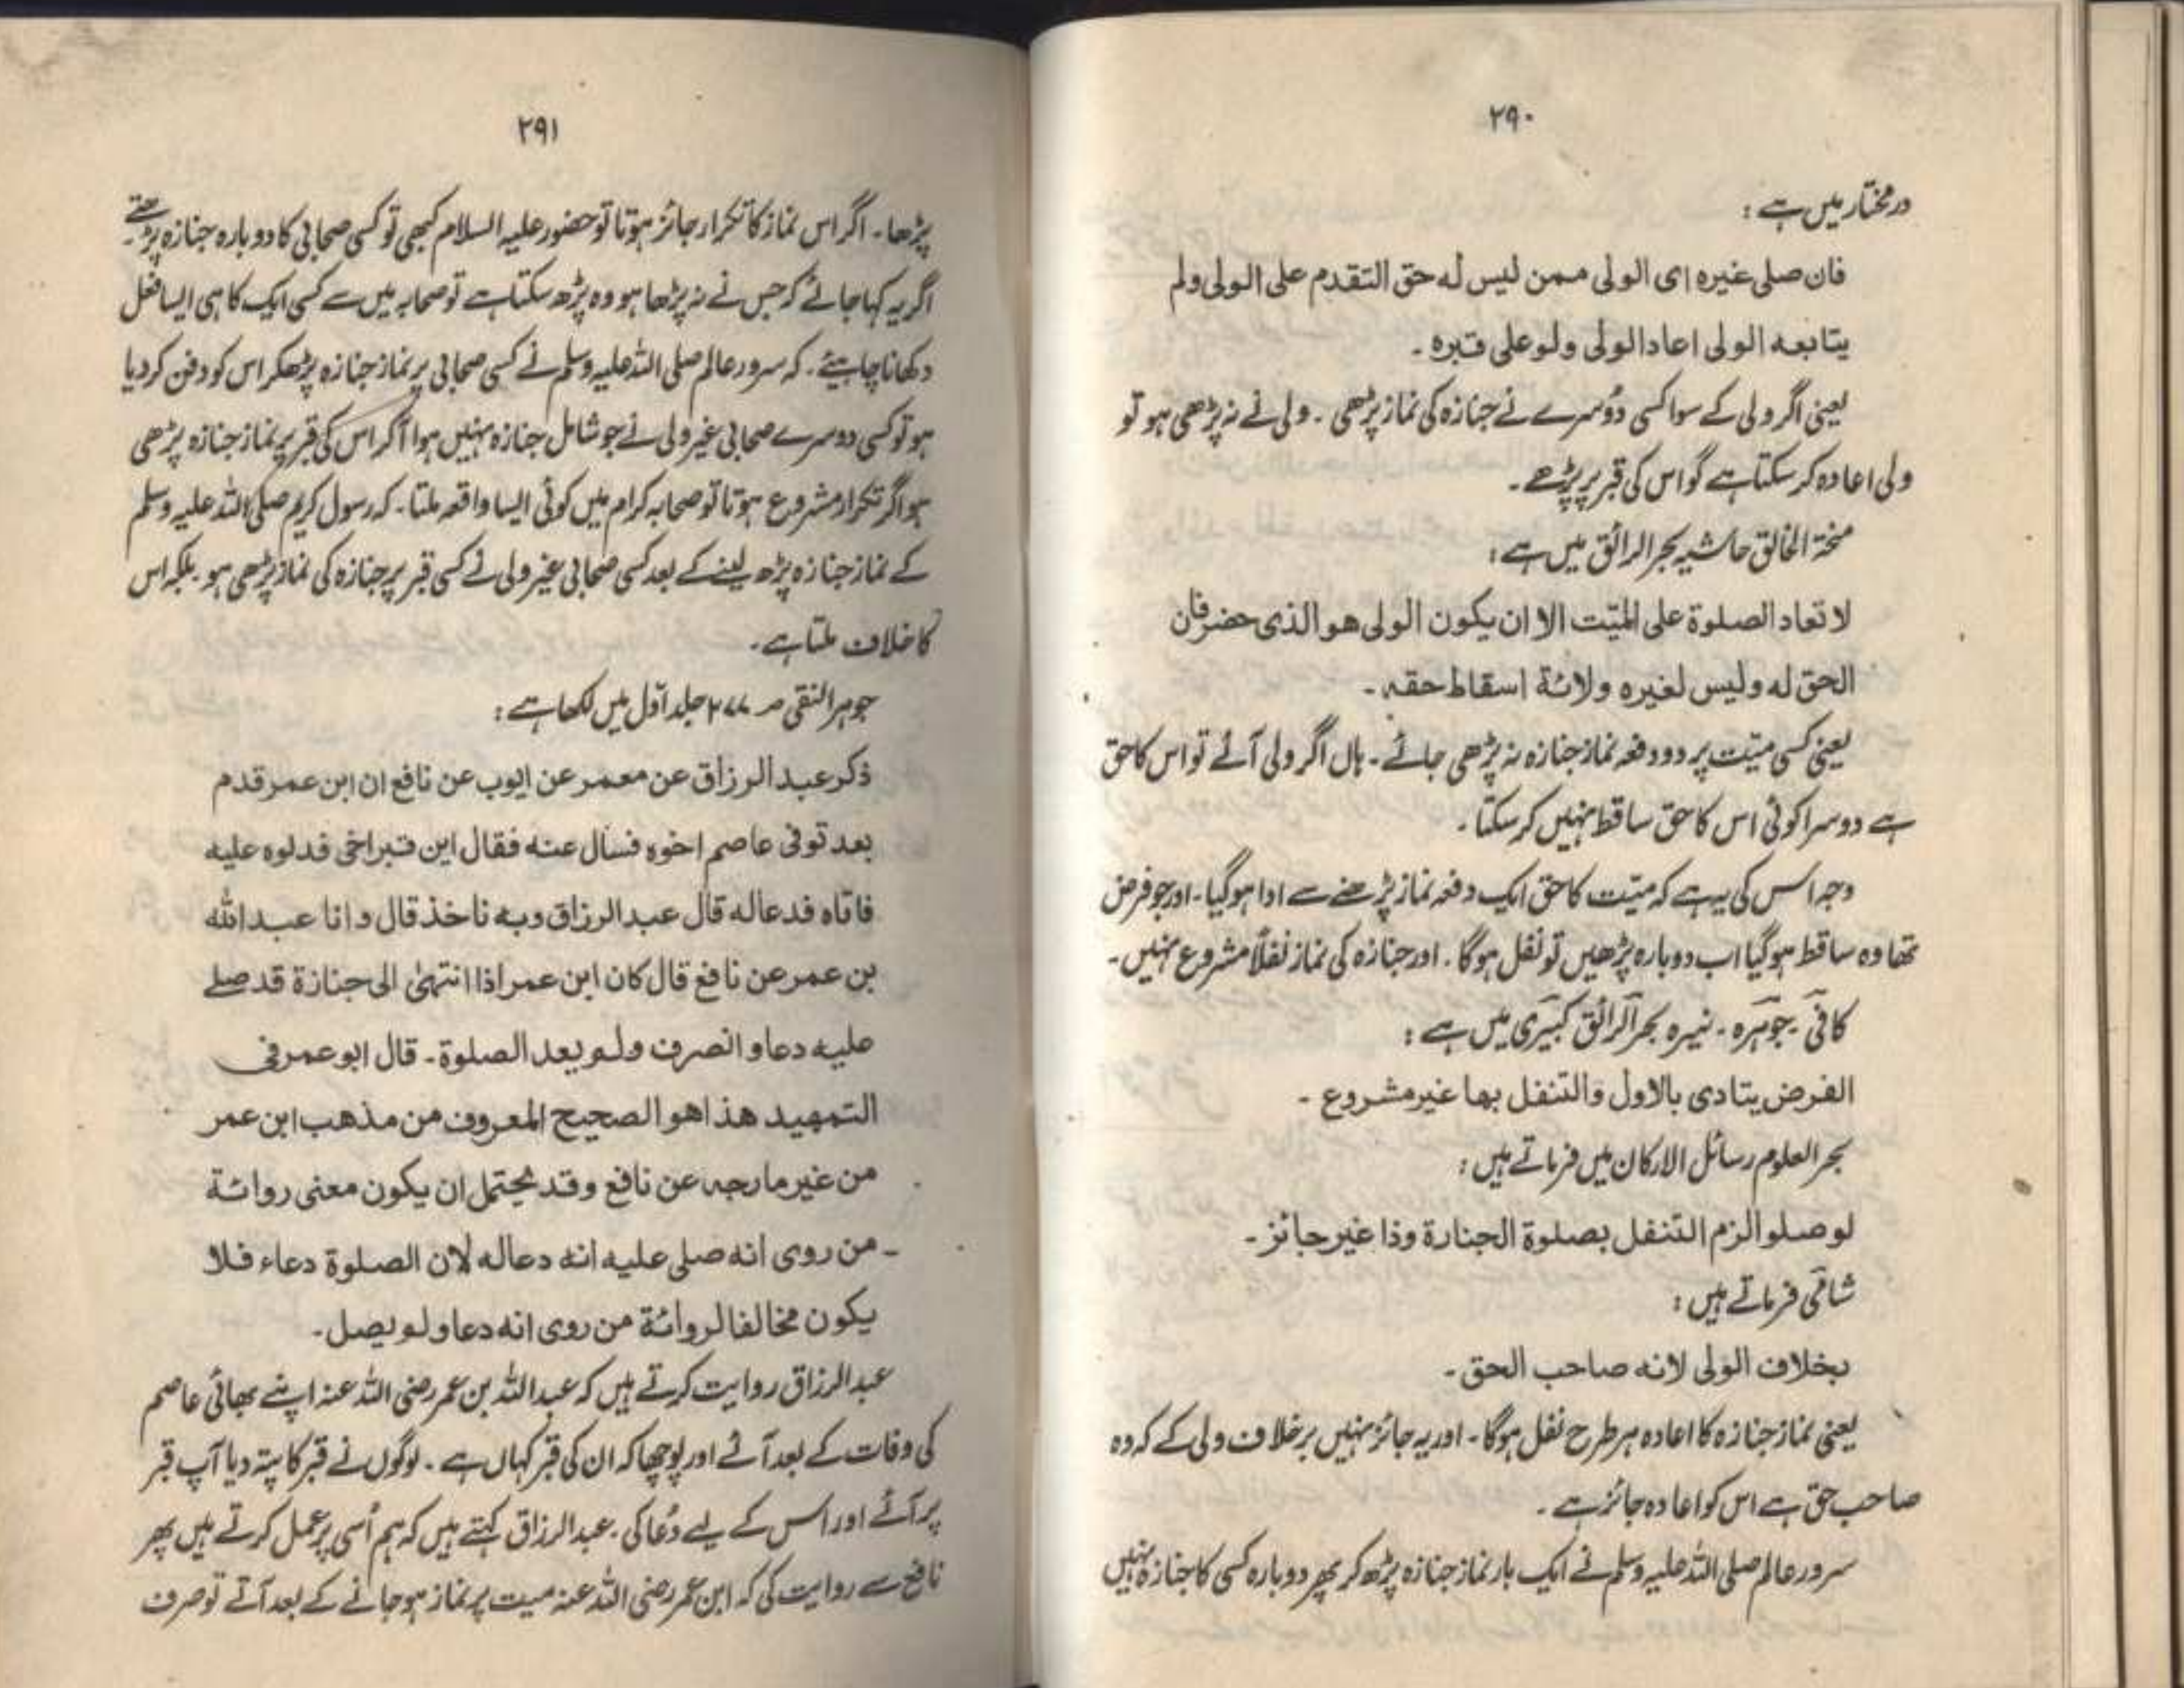 ۲۹۰
درمختار میں ہے :
فان صلی غیرہ ای الولی ممن لیس لہ حق التقدم علی الولی ولم
یتابعہ الولی اعاد الولی ولو علی قبرہ ۔
یعنی اگر ولی کے سوا کسی دُوسرے نے جنازہ کی نماز پڑھی ۔ ولی نے نہ پڑھی ہو تو
ولی اعادہ کرسکتا ہے گو اس کی قبر پر پڑھے ۔
منحۃ الخالق حاشیہ بحر الرائق میں ہے :
لا تعاد الصلوۃ علی المیّت الا ان یکون الولی ھو الذی حضر فان
الحق لہ ولیس لغیرہ ولائۃ اسقاط حقہ ۔
یعنی کسی میّت پر دو دفعہ نماز جنازہ نہ پڑھی جائے ۔ ہاں اگر ولی آئے تو اس کا حق
ہے دوسرا کوئی اس کا حق ساقط نہیں کرسکتا ۔
وجہ اس کی یہ ہے کہ میّت کا حق ایک دفعہ نماز پڑھنے سے ادا ہوگیا ۔ اور جو فرض
تھا وہ ساقط ہوگیا اب دوبارہ پڑھیں تو نفل ہوگا ۔ اور جنازہ کی نماز نفلاً مشروع نہیں ۔
کافی ۔ جوہرہ ۔ نیرہ بحر الرائق کبیری میں ہے :
الفرض یتادی بالاول والتنفل بھا غیر مشروع ۔
بحر العلوم رسائل الارکان میں فرماتے ہیں :
لو صلوا لزم التنفل بصلوۃ الجنازۃ وذا غیر جائز ۔
شامی فرماتے ہیں :
بخلاف الولی لانہ صاحب الحق ۔
یعنی نماز جنازہ کا اعادہ ہر طرح نفل ہوگا ۔ اور یہ جائز نہیں برخلاف ولی کے کہ وہ
صاحب حق ہے اس کو اعادہ جائز ہے ۔
سرور عالم صلی اللہ علیہ وسلم نے ایک بار نماز جنازہ پڑھ کر پھر دوبارہ کسی کا جنازہ نہیں
۲۹۱
پڑھا ۔ اگر اس نماز کا تکرار جائز ہوتا تو حضور علیہ السلام کبھی تو کسی صحابی کا دوبارہ جنازہ پڑھتے ۔
اگر یہ کہا جائے کہ جس نے نہ پڑھا ہو وہ پڑھ سکتا ہے تو صحابہ میں سے کسی ایک کا ہی ایسا فعل
دکھانا چاہیئے ۔ کہ سرور عالم صلی اللہ علیہ وسلم نے کسی صحابی پر نماز جنازہ پڑھکر اس کو دفن کردیا
ہو تو کسی دوسرے صحابی غیر ولی نے جو شامل جنازہ نہیں ہوا آکر اس کی قبر پر نماز جنازہ پڑھی
ہو اگر تکرار مشروع ہوتا تو صحابہ کرام میں کوئی ایسا واقعہ ملتا ۔ کہ رسول کریم صلی اللہ علیہ وسلم
کے نماز جنازہ پڑھ لینے کے بعد کسی صحابی غیر ولی نے کسی قبر پر جنازہ کی نماز پڑھی ہو ۔ بلکہ اس
کا خلاف ملتا ہے ۔
جوہر النقی صـ ۲۷۷ جلد اوّل میں لکھا ہے :
ذکر عبد الرزاق عن معمر عن ایوب عن نافع ان ابن عمر قدم
بعد توفی عاصم اخوہ فسأل عنہ فقال این قبر اخی فدلوہ علیہ
فاتاہ فدعالہ قال عبد الرزاق وبہ ناخذ قال وانا عبد اللہ
بن عمر عن نافع قال کان ابن عمر اذا انتھیٰ الی جنازۃ قد صلے
علیہ دعا و انصرف ولم یعد الصلوۃ ۔ قال ابو عمر فی
التمھید ھذا ھو الصحیح المعروف من مذھب ابن عمر
من غیر ما رجہ عن نافع وقد یحتمل ان یکون معنی روائۃ
من روی انہ صلی علیہ انہ دعالہ لان الصلوۃ دعاء فلا
یکون مخالفا لروائۃ من روی انہ دعا ولم یصل ۔
عبد الرزاق روایت کرتے ہیں کہ عبد اللہ بن عمر رضی اللہ عنہ اپنے بھائی عاصم
کی وفات کے بعد آئے اور پوچھا کہ ان کی قبر کہاں ہے ۔ لوگوں نے قبر کا پتہ دیا آپ قبر
پر آئے اور اس کے لیے دُعا کی ۔ عبد الرزاق کہتے ہیں کہ ہم اُسی پر عمل کرتے ہیں پھر
نافع سے روایت کی کہ ابن عمر رضی اللہ عنہ میت پر نماز ہو جانے کے بعد آتے تو صرف